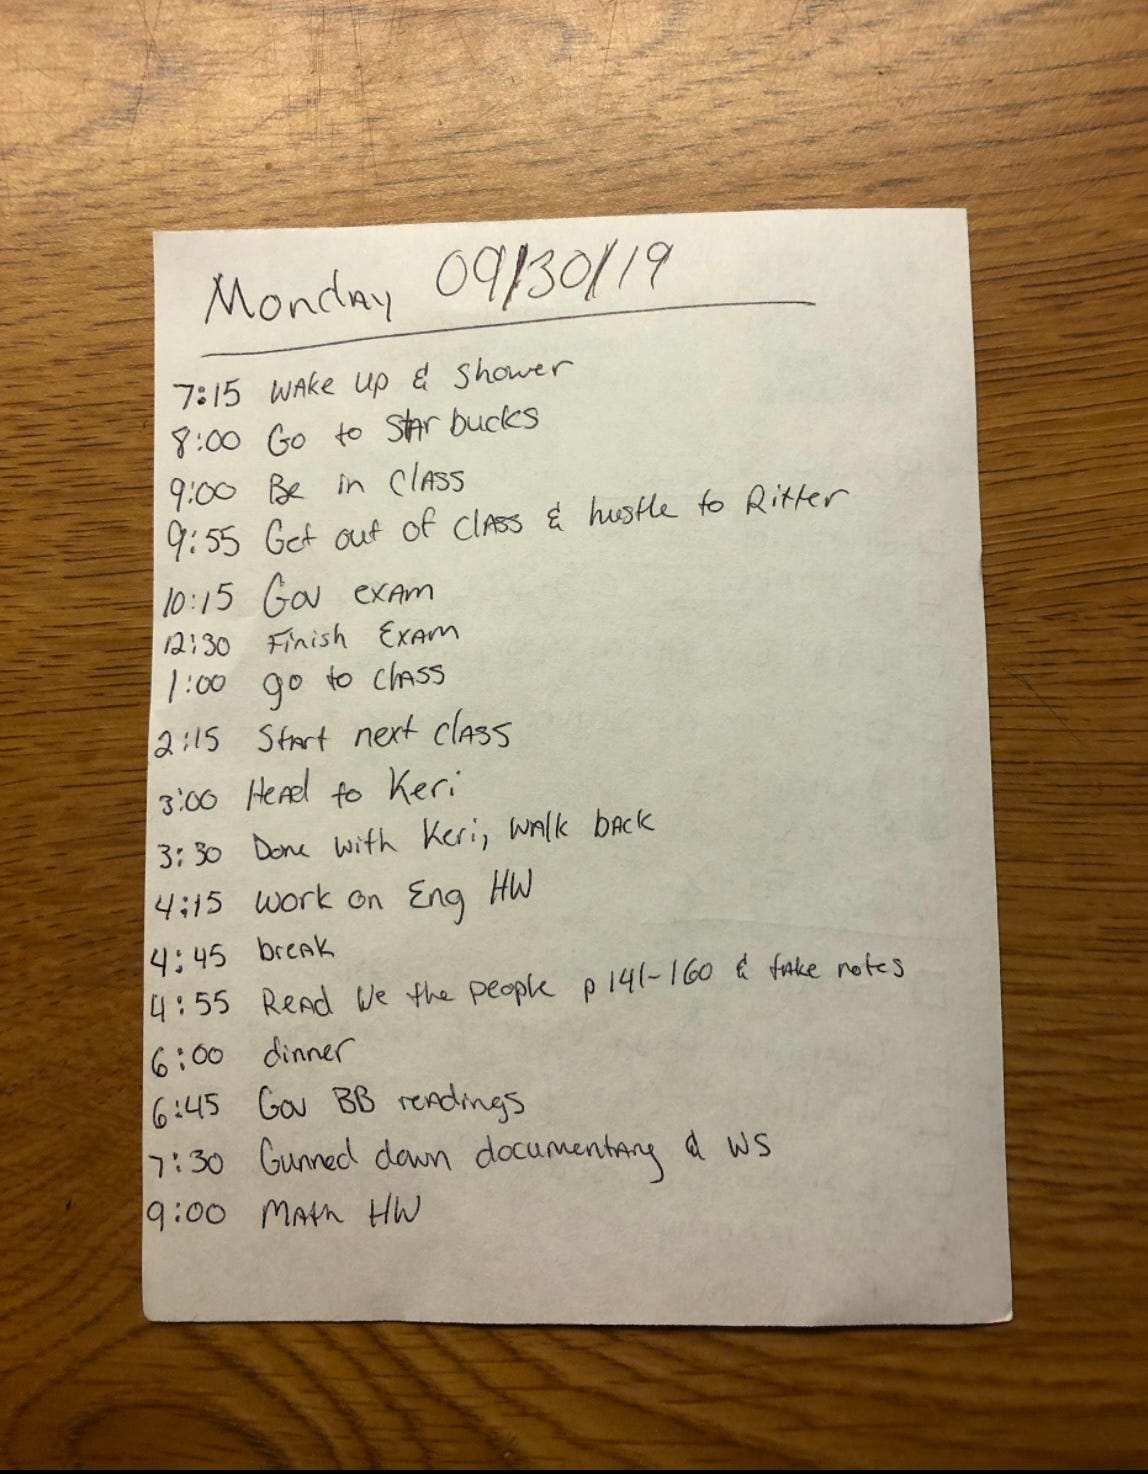 Monday 09/30/19
7:15 Wake up & Shower
8:00 Go to Starbucks
9:00 Be in Class
9:55 Get out of class & hustle to Ritter
10:15 Gov exam
12:30 Finish Exam
1:00 go to class
2:15 Start next class
3:00 Head to Keri
3:30 Done with Keri, walk back
4:15 work on Eng HW
4:45 break
4:55 Read We the people p 141-160 & take notes
6:00 dinner
6:45 Gov BB readings
7:30 Gunned down documentary & WS
9:00 Math HW